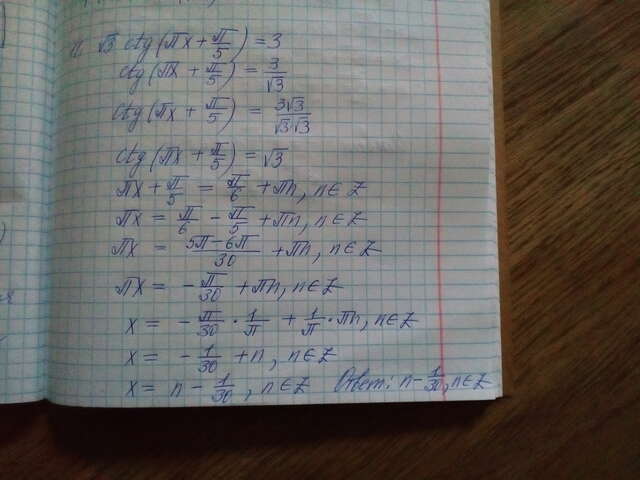 √3 ctg(πx + π/5) = 3
ctg(πx + π/5) = 3/√3
ctg(πx + π/5) = 3√3/√3√3
ctg(πx + π/5) = √3
πx + π/5 = π/6 + πn, n∈Z
πx = π/6 - π/5 + πn, n∈Z
πx = 5π-6π/30 + πn, n∈Z
πx = -π/30 + πn, n∈Z
x = -π/30 · 1/π + 1/π · πn, n∈Z
x = -1/30 + n, n∈Z
x = n - 1/30, n∈Z Ответ: n - 1/30, n∈Z